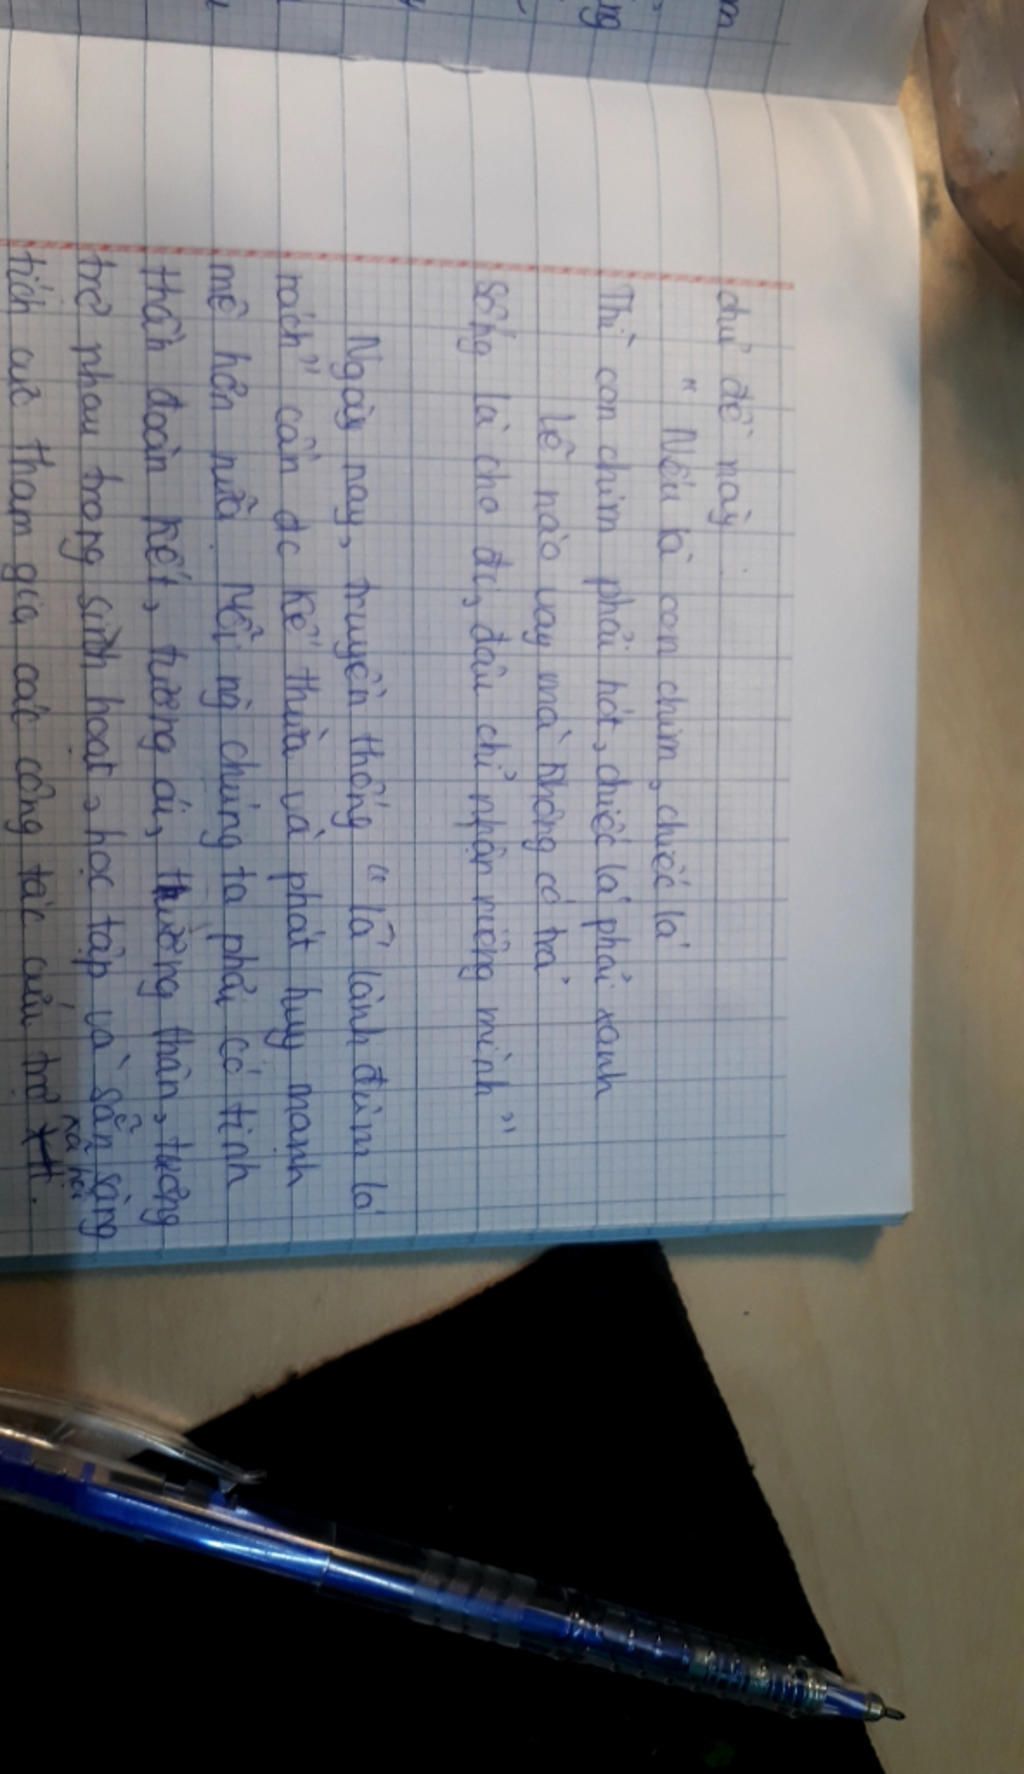 chủ đề này:
" Nếu là con chim, chiếc lá
Thì con chim phải hót, chiếc lá phải xanh
Lẽ nào vay mà không có trả
Sống là cho đi, đâu chỉ nhận riêng mình "
Ngày nay, truyền thống " lá lành đùm lá
rách" cần đc kế thừa và phát huy mạnh
mẽ hơn nữa. Mỗi ng chúng ta phải có tinh
thần đoàn kết, tương ái, tương thân, tương
trợ nhau trong sinh hoạt, học tập và sẵn sàng
tích cực tham gia các công tác cứu trợ xã hội.